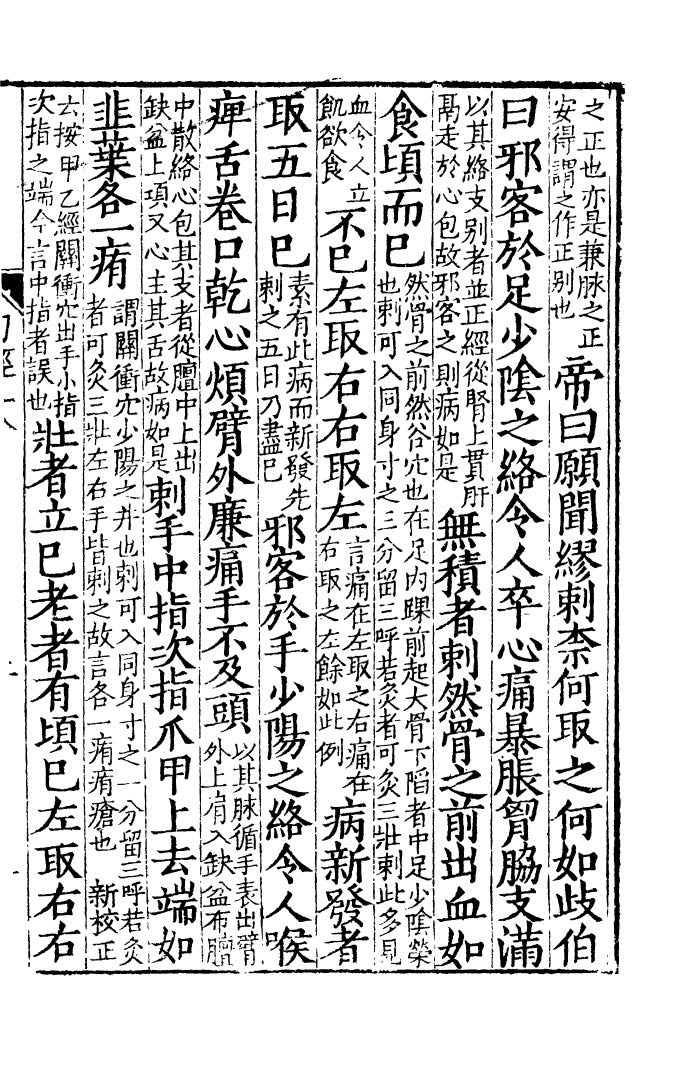 之正也亦是兼脉之正
安得謂之作正别也
帝曰願聞繆刺柰何取之何如歧伯
曰邪客於足少陰之絡令人卒心痛暴脹胷脇支滿
以其絡支别者並正經從腎上貫肝
鬲走於心包故邪客之則病如是
無積者刺然骨之前出血如
食頃而已
然骨之前然谷穴也在足内踝前起大骨下陷者中足少陰滎
也刺可入同身寸之三分留三呼若灸者可灸三壯刺此多見
血令人立
飢欲食
不已左取右右取左
言痛在左取之右痛在
右取之左餘如此例
病新發者
取五日已
素有此病而新發先
刺之五日乃盡已
邪客於手少陽之絡令人喉
痺舌卷口乾心煩臂外廉痛手不及頭
以其脉循手表出臂
外上肩入缺盆布膻
中散絡心包其支者從膻中上出
缺盆上項又心主其舌故病如是
刺手中指次指爪甲上去端如
韭葉各一痏
謂關衝穴少陽之井也刺可入同身寸之一分留三呼若灸
者可灸三壯左右手皆刺之故言各一痏痏瘡也 新校正
云按甲乙經關衝穴出手小指
次指之端今言中指者誤也
壯者立已老者有頃已左取右右